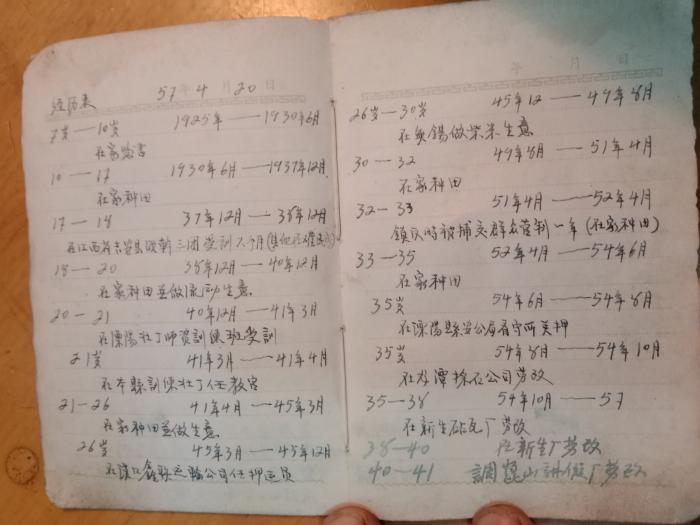 年 月 日
57 4 20
经历表
7岁——10岁 1925年——1930年6月
在家念书
10—17 1930年6月——1937年12月
在家种田
17—18 37年12月——38年12月
在江西省吉安 三团受训六个月
18—20 38年12月——40年12月
在家种田並做流动生意
20—21 40年12月——41年3月
在溧陽壮丁师资訓练班受訓
21岁 41年3月——41年4月
在本縣訓练壮丁任教官
21—26 41年4月——45年3月
在家种田並做生意
26岁 45年3月——45年12月
在漢口 运輸公司任押运员
年 月 日
26岁—30岁 45年12——49年8月
在無锡做柴米生意
30—32 49年8月——51年4月
在家种田
32—33 51年4月——52年4月
鎮反時被捕交群众管制一年(在家种田)
33—35 52年4月——54年6月
在家种田
35岁 54年6月——54年8月
在溧陽縣公安局看守所关押
35岁 54年8月——54年10月
在龙潭採石公司劳改
35—38 54年10月——57
在新生砖瓦厂劳改
38—40 在新生厂劳改
40—41 調崑山 厂劳改